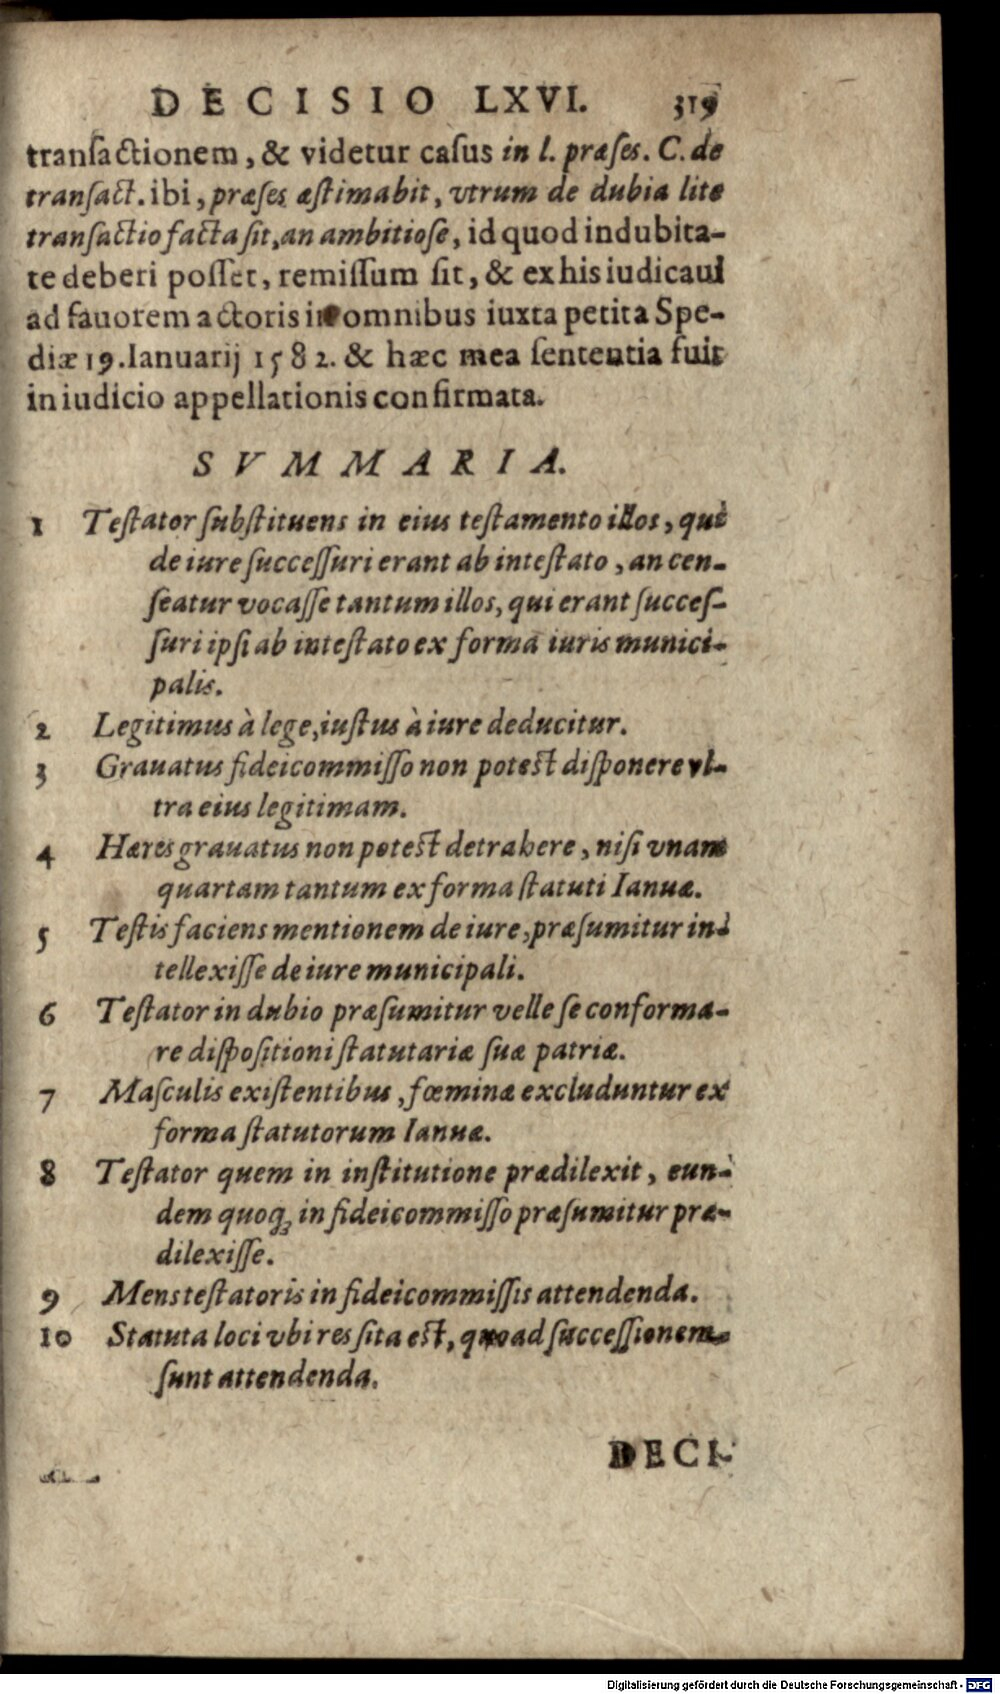 DECISIO LXVI. 319
transactionem, & videtur casus in l. præses. C. de
transact. ibi, præses æstimabit, vtrum de dubia lite
transactio facta sit, an ambitiose, id quod indubita-
te deberi posset, remissum sit, & ex his iudicaui
ad fauorem actoris in omnibus iuxta petita Spe-
diæ 19. Ianuarij 1582. & hæc mea sententia fuit
in iudicio appellationis confirmata.
SVMMARIA.
1 Testator substituens in eius testamento illos, qui
de iure successuri erant ab intestato, an cen-
seatur vocasse tantum illos, qui erant succes-
suri ipsi ab intestato ex forma iuris munici-
palis.
2 Legitimus à lege, iustus à iure deducitur.
3 Grauatus fideicommisso non potest disponere vl-
tra eius legitimam.
4 Hæres grauatus non potest detrahere, nisi vnam
quartam tantum ex forma statuti Ianuæ.
5 Testis faciens mentionem de iure, præsumitur in-
tellexisse de iure municipali.
6 Testator in dubio præsumitur velle se conforma-
re dispositioni statutariæ suæ patriæ.
7 Masculis existentibus, fœminæ excluduntur ex
forma statutorum Ianuæ.
8 Testator quem in institutione prædilexit, eun-
dem quoq; in fideicommisso præsumitur præ-
dilexisse.
9 Mens testatoris in fideicommissis attendenda.
10 Statuta loci vbi res sita est, quoad successionem
sunt attendenda.
DECI-
Digitalisierung gefördert durch die Deutsche Forschungsgemeinschaft - DFG